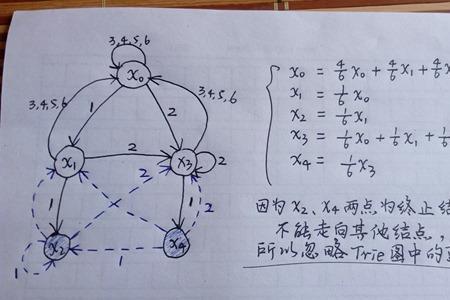 3,4,5,6
x₀
3,4,5,6
1
2
3,4,5,6
x₁
2
x₃
2
1
2
2
1
2
x₂
x₄
1
1
x₀ = 4/6 x₀ + 4/6 x₁ + 4/6 x
x₁ = 1/6 x₀
x₂ = 1/6 x₁
x₃ = 1/6 x₀ + 1/6 x₁ + 1/6
x₄ = 1/6 x₃
因为 x₂、x₄ 两点为终止结
不能走向其他结点，
所以忽略Trie图中的